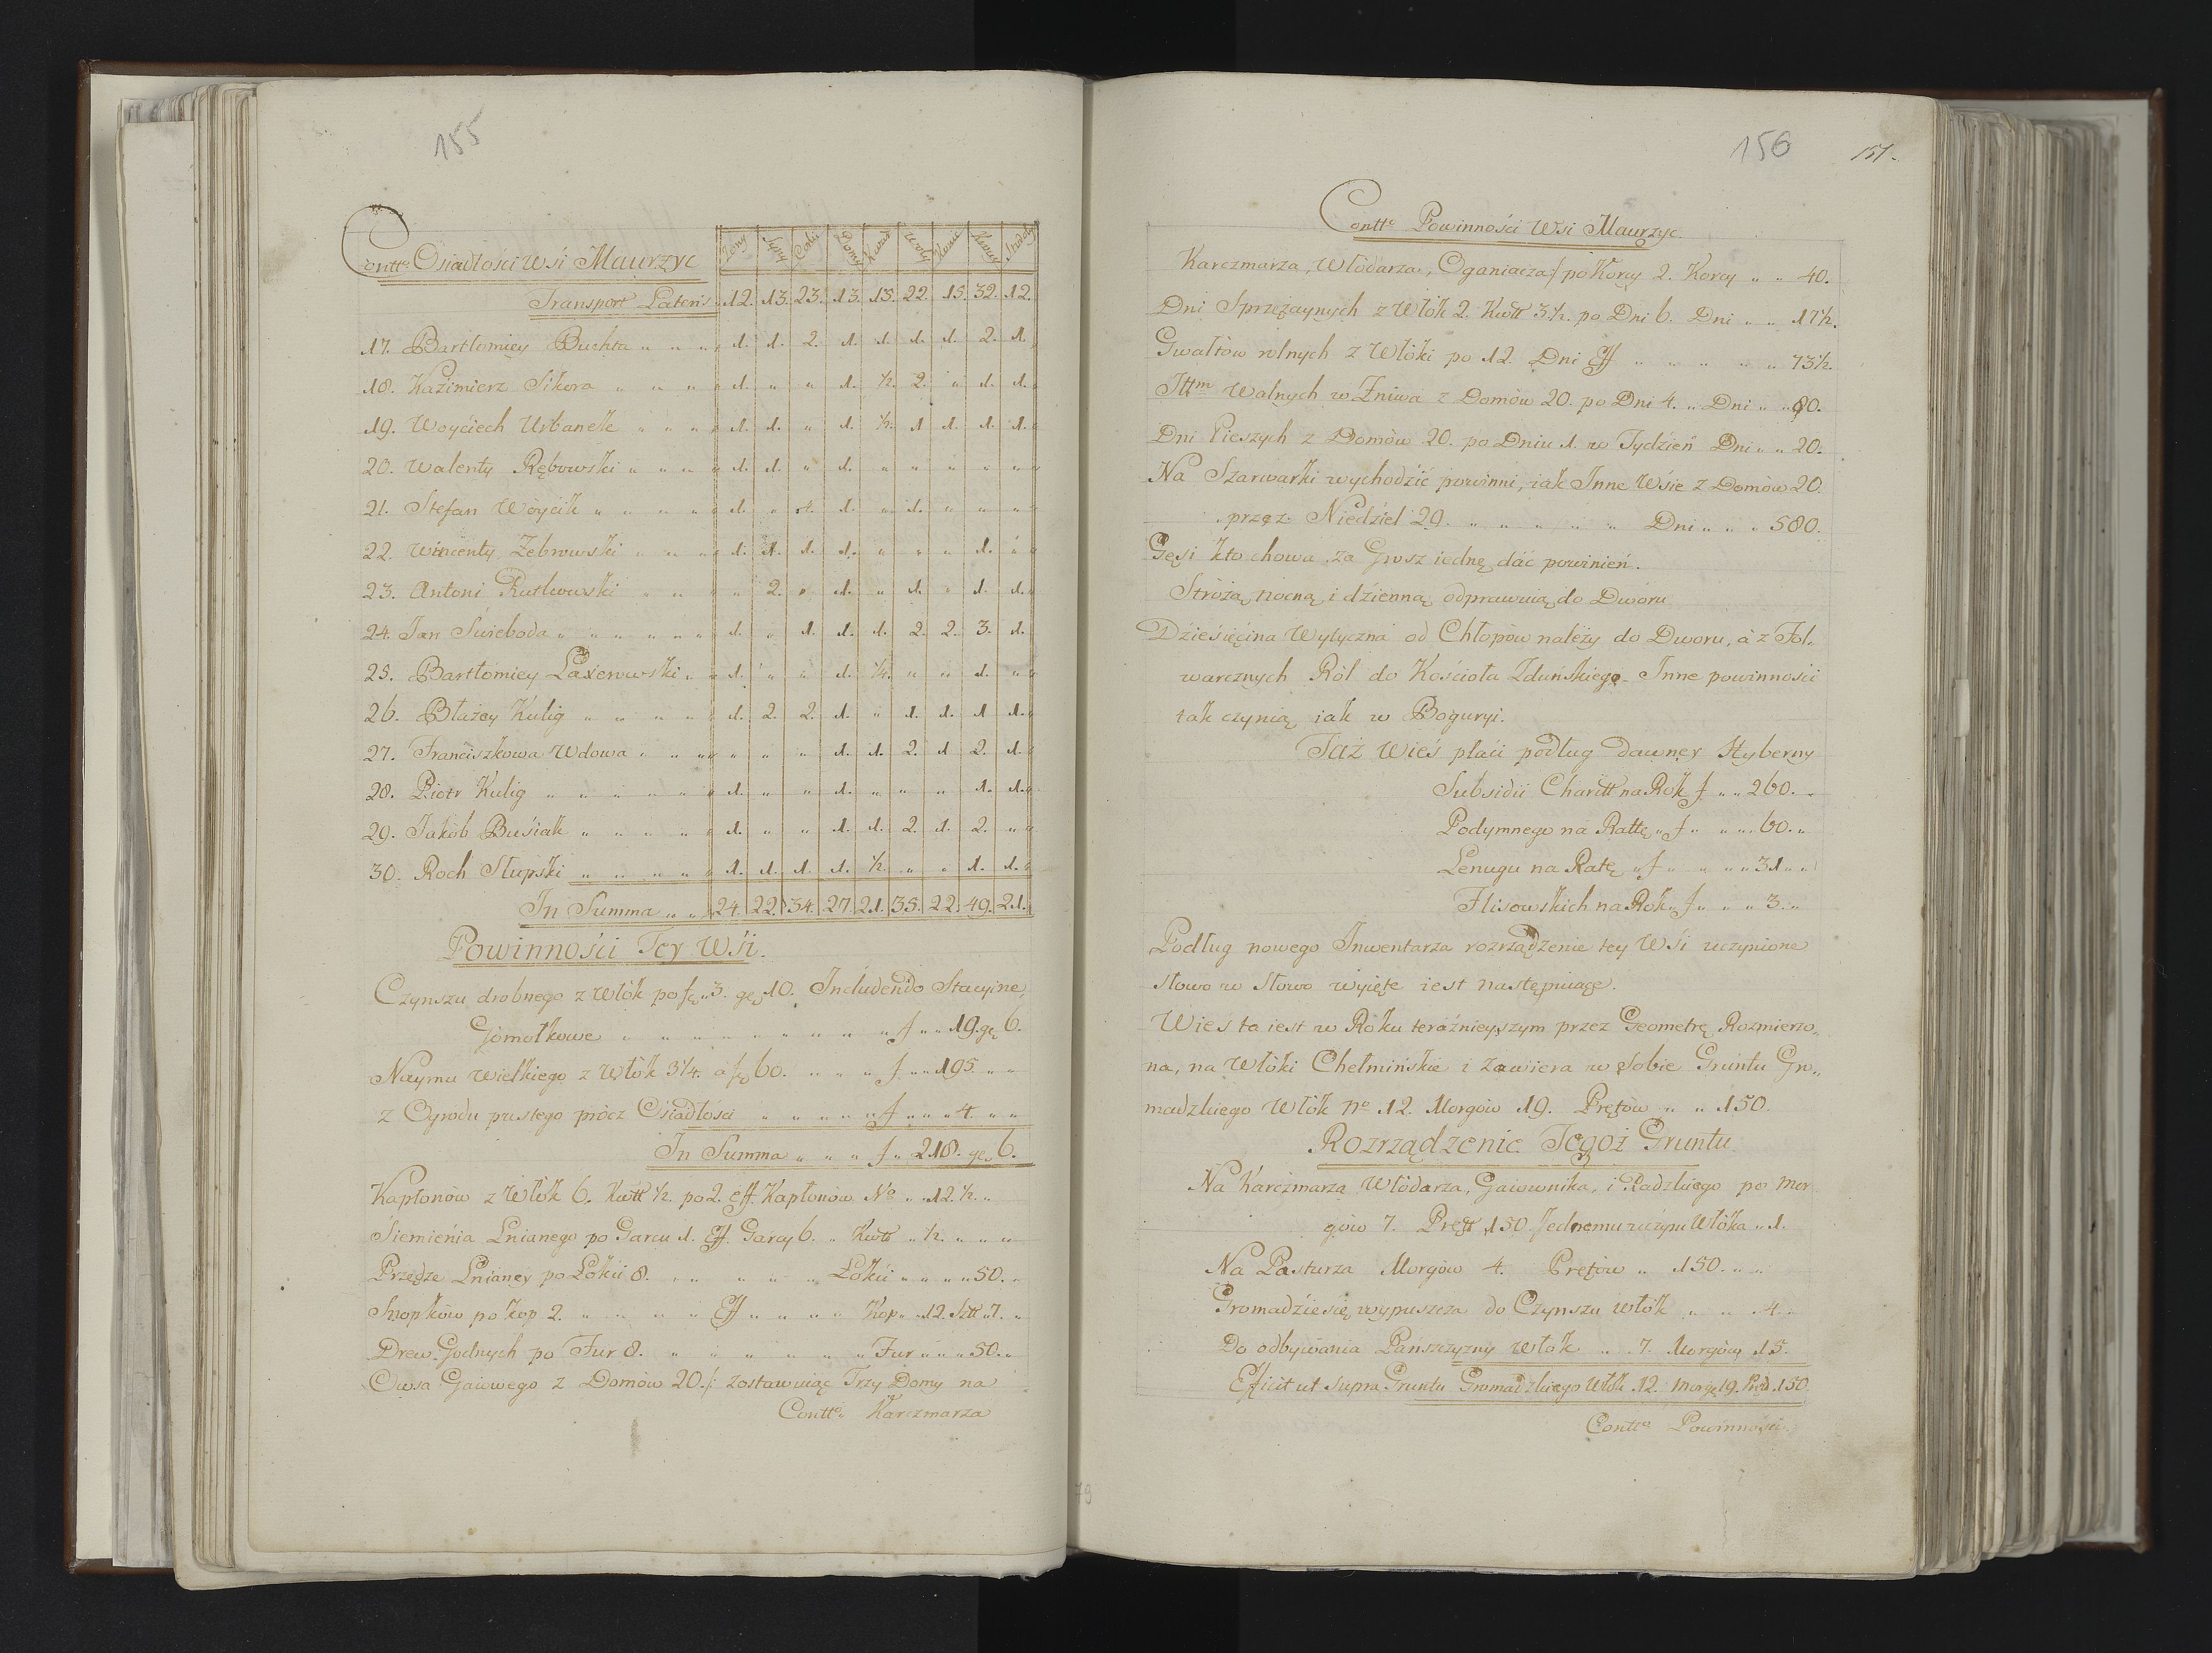 155
Contto Osiadłości Wsi Maurzyc
Zony Syny Corki Domy Woły Konie Krowy Stodoły
Transport Lateris 12. 13. 23. 13. 15. 22. 15. 32. 12.
17. Bartłomiey Buchta „ „ „ 1. 1. 2. 1. 1. 1. 1. 2. 1.
18. Kaźimierz Sikora „ „ „ 1. „ „ 1. ½. 2. „ 1. 1.
19. Woyciech Urbanek „ „ „ 1. 1. „ 1. ½. 1 1. 1. 1.
20. Walenty Rębowski „ „ „ 1. 1. „ 1. „ „ „ „ „
21. Stefan Woycik „ „ „ „ 1. „ 1. 1. „ 1. „ „ „
22. Wincenty Zebrowski „ „ „ 1. 1. 1. 1. „ „ „ 1. „
23. Antoni Rutkowski „ „ „ „ 2. „ 1. „ 1. „ 1. 1.
24. Jan Swieboda „ „ „ „ „ 1. „ 1. 1. 1. 2. 2. 3. 1.
25. Bartłomiey Laxerowski „ „ 1. „ „ 1. ½. „ „ 1. „
26. Błażey Kulig „ „ „ „ 1. 2. 2. 1. „ 1. 1. 1 1.
27. Franciszkowa Wdowa „ „ „ „ „ „ 1. 1. 2. 1 2. 1.
28. Piotr Kulig „ „ „ „ „ 1. „ „ 1. „ „ „ 1. 1.
29. Jakób Busiak „ „ „ „ 1. „ „ 1. 1. 2. 1. 2. „
30. Roch Słupski „ „ „ „ 1. 1. 1. 1. ½. „ „ 1. 1.
In Summa „ „ 24. 22. 34. 27 21. 35. 22. 49. 21.
Powinności Tey Wsi.
Czynszu drobnego z Włók po f „ 3. gr 10. Includendo Stacyine,
Gomołkowe „ „ „ „ „ „ „ „ f „ „ 19. gr 6.
Naymu Wielkiego z Włók 3¼. a f 60. „ „ „ f „ „ 195 „ „
z Ogrodu pustego prócz Osiadłości „ „ „ „ „ f „ „ „ 4 „ „
In Summa „ „ „ f „ 218. gr 6.
Kapłonów z Włók 6. Kwtt ½. po 2. eff. Kapłonów No „ „ 12.½. „
Siemienia Lnianego po Garcu 1. Eff. Garcy 6. „ Kwtt „ ½. „ „ „
Przędze Lnianey po Łokci 8. „ „ „ „ „ Łokci „ „ „ „ 50. „
Snopków po kop 2. „ „ „ „ Eff „ „ „ „ Kop „ „ 12. Sztt „ 7. „
Drew Godnych po Fur 8. „ „ „ „ „ „ „ Fur „ „ „ 50. „
Owsa Gaiowego z Domów 20./: zostawuiąc Trzy Domy na
Contto Karczmarza
79
156 157.
Contto Powinności Wsi Maurzyc.
Karczmarza, Włodarza, Oganiacza:/ po Korcy 2. Korcy „ „ 40.
Dni Sprzężaynych z Włók 2. Kwtt 3½. po Dni 6. Dni „ „ 17½.
Gwałtów rolnych z Włóki po 12. Dni Eff „ „ „ „ „ 73½.
Ittm Walnych w Zniwa z Domów 20. po Dni 4. „ Dni „ „ 80.
Dni Pieszych z Domów 20. po Dniu 1. w Tydzień Dni „ „ 20.
Na Szarwarki wychodzić powinni, iak Inne Wsie z Domów 20.
przez Niedziel 29. „ „ „ „ „ Dni „ „ „ 580.
Gęsi kto chowa za Grosz iednę dać powinień.
Stróżą nocną i dzienną odprawuią do Dworu
Dziesięcina Wytyczna od Chłopów należy do Dworu, a z Fol„
warcznych Ról do Kościoła Zduńskiego. Inne powinności
tak czynią iak w Boguryi.
Taż Wieś płaci podług dawney Hyberny
Subsidii Charitt na Rok f „ „ 260. „
Podymnego na Rattę „ f „ „ „ 60. „
Lenugu na Ratę „ f „ „ „ 31. „
Flisowskich na Rok „ f „ „ „ 3. „
Podług nowego Inwentarza rozrządzenie tey Wsi uczynione
słowo w słowo wyięte iest następuiące.
Wieś ta iest w Roku teraźnieyszym przez Geometrę Rozmierzo„
na, na Włóki Chełmińskie i zawiera w sobie Gruntu Gro„
madzkiego Włók No 12. Morgów 19. Prętów „ „ 150.
Rozrządzenie Tegoż Gruntu
Na Karczmarza Włodarza, Gaiownika, i Radzkiego po Mor
gów 7. Prętt 150. Jednemu uczyni Włóka „ 1.
Na Pasturza Morgów 4. Prętów „ 150. „ „
Gromadzie się wypuszcza do Czynszu Włók „ „ „ 4.
Do odbywania Pańszczyzny Włók „ „ 7. Morgów 15.
Efficit ut supra Gruntu Gromadzkiego Włók 12. Morg 19. Pręt. 150
Contto Powinności